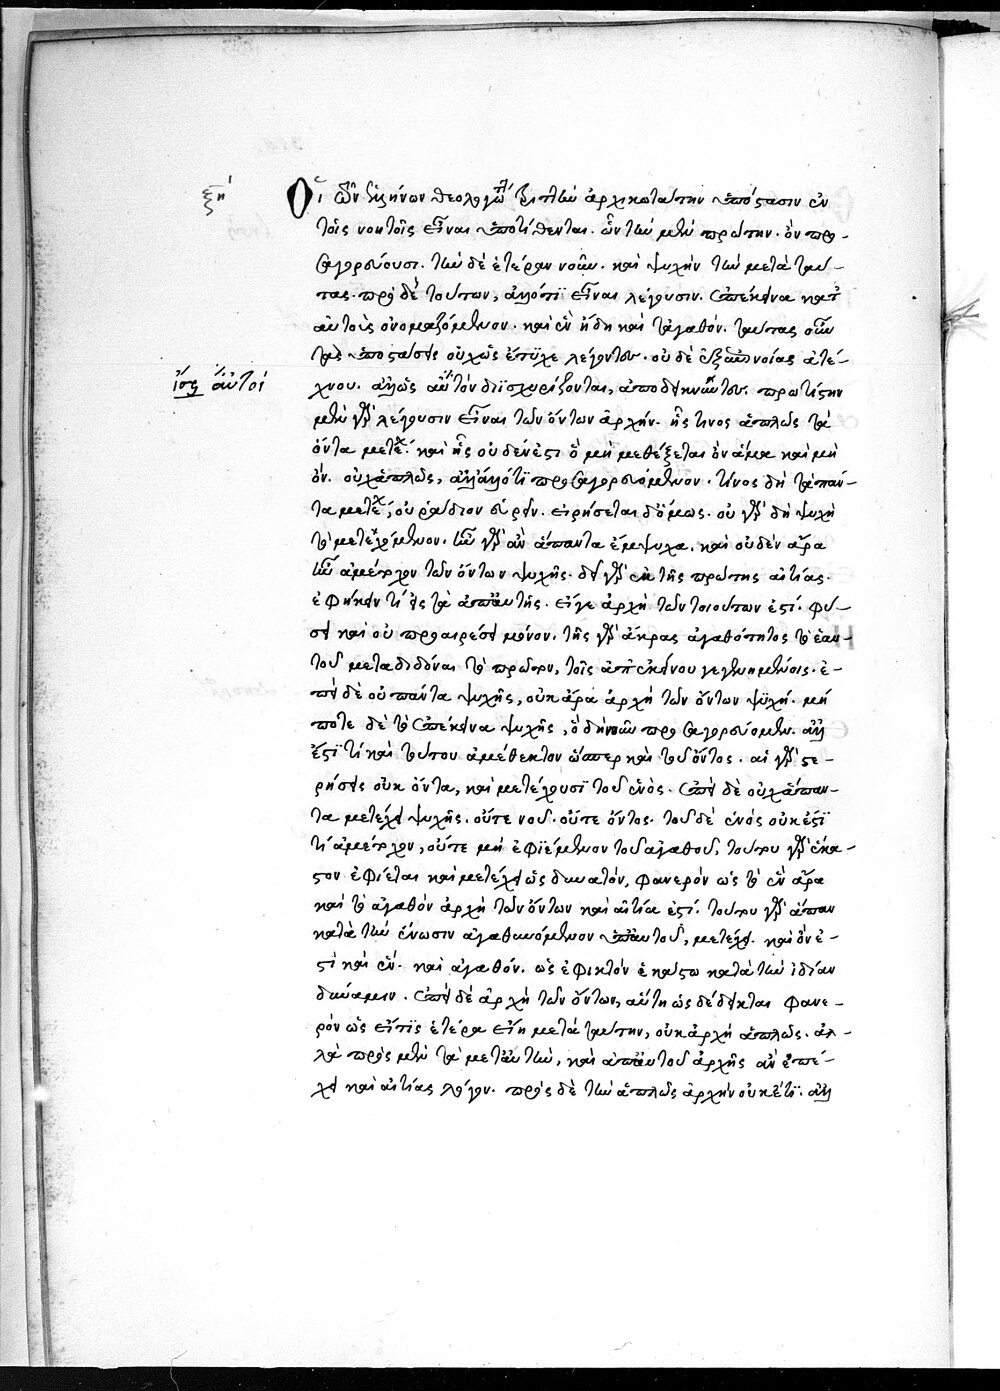 ξηʹ
Οἱ τῶν ἑλλήνων θεολόγων τριττὴν ἀρχικωτάτην ὑπόστασιν ἐν
τοῖς νοητοῖς εἶναι ὑποτίθενται. ὧν τὴν μὲν πρώτην. ὂν προ-
σαγορεύουσι. τὴν δὲ ἑτέραν νοῦν. καὶ ψυχὴν τὴν μετὰ ταύ-
τας. πρὸ δὲ τούτων, ἄλλό τι εἶναι λέγουσιν. ἐπέκεινα κατ'
αὐτοὺς ὀνομαζόμενον. καὶ ἓν ἤδη καὶ τἀγαθόν. ταύτας οὖν
τὰς ὑποστάσεις οὐχ ὡς ἔτυχε λέγοντες. οὐδὲ ἐξ ἐπινοίας ἀτέ-
ἴσως αὐτοί
χνου. ἀλλ' ὡς αὐτὸν διϊσχυρίζονται, ἀποδεικνύντες. πρωτίστην
μὲν γὰρ λέγουσιν εἶναι τῶν ὄντων ἀρχήν. ἧς τινος ἁπλῶς τὰ
ὄντα μετέχει. καὶ ἧς οὐδέν ἐστι ὃ μὴ μεθέξεται ὂν ἅμα καὶ μὴ
ὄν. οὐχ ἁπλῶς, ἀλλ' ἄλλό τι προσαγορευόμενον. τίνος δὴ τὰ πάν-
τα μετέχει, οὐ ῥᾴδιον εὑρεῖν. εἰρήσεται δ' ὅμως. οὐ γὰρ δὴ ψυχὴ
τὸ μετεχόμενον. ἦν γὰρ ἂν ἅπαντα ἔμψυχα. καὶ οὐδὲν ἄρα
ἦν ἀμέτοχον τῶν ὄντων ψυχῆς. δεῖ γὰρ ἐκ τῆς πρώτης αἰτίας.
ἐφήκειν τι εἰς τὰ ἀπ' αὐτῆς. εἴγε ἀρχὴ τῶν τοιούτων ἐστί. φύ-
σει καὶ οὐ προαιρέσει μόνον. τῆς γὰρ ἄκρας ἀγαθότητος τὸ ἑαυ-
τοῦ μεταδιδόναι τὸ πρῶτον, τοῖς ἀπ' ἐκείνου γεγενημένοις. ἐ-
πεὶ δὲ οὐ πάντα ψυχῆς, οὐκ ἄρα ἀρχὴ τῶν ὄντων ψυχή. μή
ποτε δὲ τὸ ἐπέκεινα ψυχῆς, ὃ δὴ νοῦν προσαγορεύομεν. ἀλλ'
ἔστί τι καὶ τούτου ἀμέθεκτον ὥσπερ καὶ τοῦ ὄντος. αἱ γὰρ στε-
ρήσεις οὐκ ὄντα, καὶ μετέχουσι τοῦ ἑνός. ἐπεὶ δὲ οὐχ ἅπαν-
τα μετέχει ψυχῆς. οὔτε νοῦ. οὔτε ὄντος. τοῦ δὲ ἑνὸς οὐκ ἔστί
τι ἀμέτοχον, οὔτε μὴ ἐφιέμενον τοῦ ἀγαθοῦ, τούτου γὰρ ἕκα-
στον ἐφίεται καὶ μετέχει ὡς δυνατόν, φανερὸν ὡς τὸ ἓν ἄρα
καὶ τὸ ἀγαθὸν ἀρχὴ τῶν ὄντων καὶ αἰτία ἐστί. τούτου γὰρ ἅπαν
κατὰ τὴν ἕνωσιν ἀγαθυνόμενον ὑπ' αὐτοῦ, μετέχει. καὶ ὄν ἐ-
στι καὶ ἕν. καὶ ἀγαθόν. ὡς ἐφικτὸν ἑκάστῳ κατὰ τὴν ἰδίαν
δύναμιν. ἐπεὶ δὲ ἀρχὴ τῶν ὄντων, αὕτη ὡς δέδεικται φανε-
ρὸν ὡς εἴ τις ἑτέρα εἴη μετὰ ταύτην, οὐκ ἀρχὴ ἁπλῶς. ἀλ-
λὰ πρὸς μὲν τὰ μετ' αὐτήν, καὶ ἀπ' αὐτοῦ ἀρχῆς ἂν ἐπέ-
χει καὶ αἰτίας λόγον. πρὸς δὲ τὴν ἁπλῶς ἀρχὴν οὐκέτι. ἀλλ'